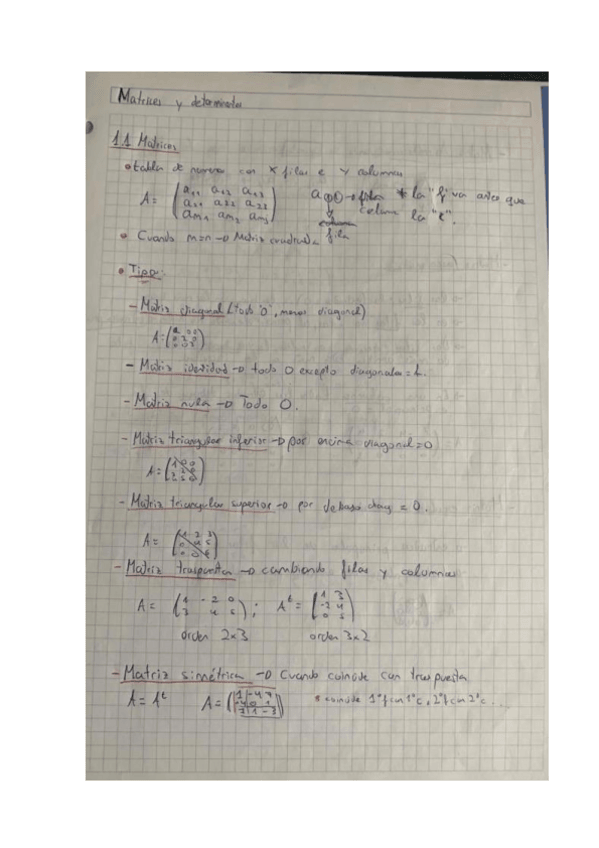 Matrices y determinantes
1.1 Matrices
• tabla de numeros con x filas e y columnas
A = (a11 a12 a13 → fila * la "f" va antes que
a21 a22 a23 columna la "c".
am1 am2 am3) fila
• Cuando m=n → Matriz cuadrada
• Tipo:
- Matriz diagonal (todo "0", menos diagonal)
A=
- Matriz identidad → todo 0 excepto diagonal = 1.
- Matriz nula → Todo 0.
- Matriz triangular inferior → por encima diagonal = 0
A=
- Matriz triangular superior → por debajo diag = 0.
A = (1 2 3
- Matriz traspuesta → cambiando filas y columnas
A = (1 -2 0 ; A^t = (1 3
3 4 5) -2 4
0 5)
orden 2x3 orden 3x2
- Matriz simétrica → Cuando coincide con traspuesta
A = A^t A = * coincide 1ª f con 1ª c, 2ª f con 2ª c...